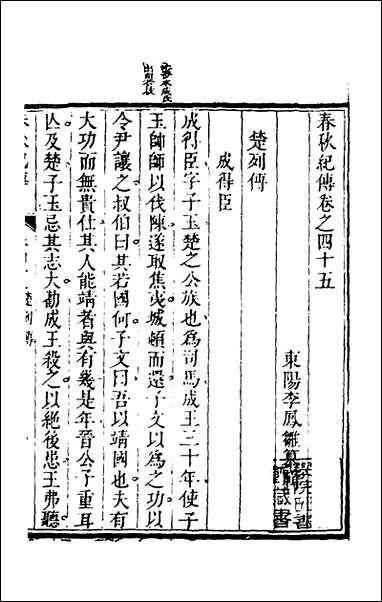 春秋紀傳卷之四十五
東陽李鳳雛纂輯
楚列傳
成得臣
成得臣字子玉楚之公族也為司馬成王三十年使子
玉帥師以伐陳遂取焦夷城頓而還子文以為之功以
令尹讓之叔伯曰其若國何子文曰吾以靖國也夫有
大功而無貴仕其人能靖者與有幾是年晉公子重耳
亾及楚子玉忌其志大勸成王殺之以絶後患王弗聽
楚列傳